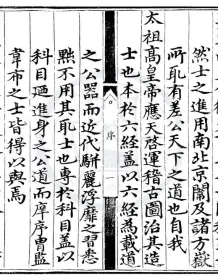 然士之進用南北京闈及諸方嶽
所耴有差公天下之道也自我
太祖髙皇帝應天啓運稽古圖治其造
士也本於六經蓋以六經為載道
序
之公噐而近代駢麗浮靡之習悉
黜不用其耴士也專於科目蓋以
科目迺進身之公道而庠序曹監
韋布之士皆得以與焉